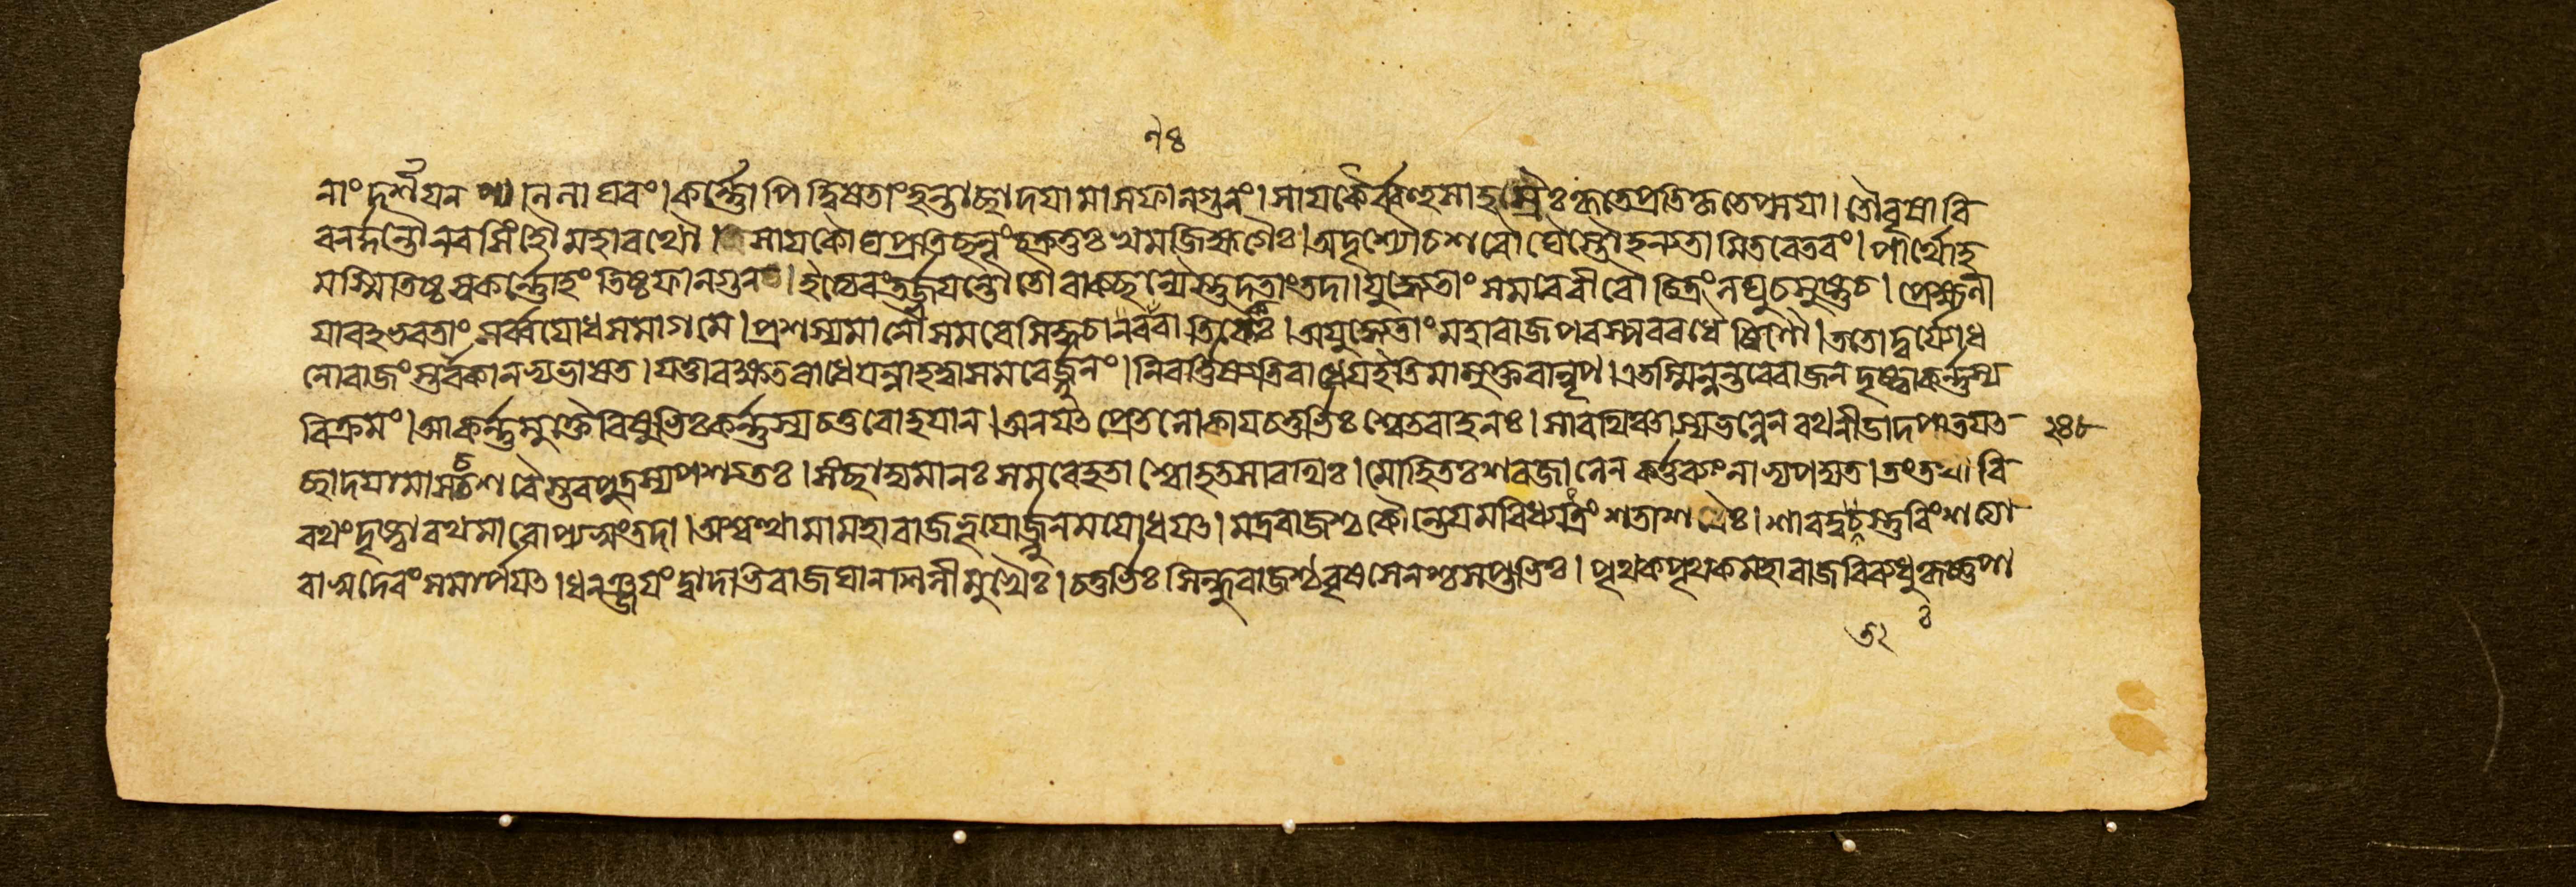 ৭৪
নাং দর্শযন পাণিলাঘবং। কর্ন্নোপি দ্বিষতাং হন্তা ছাদযামাস ফালগুনং। সাযকৈর্ব্বহুসাহস্রৈঃ কৃতপ্রতিকৃতেপ্সযা। তৌ বৃষাবি
বনর্দ্দন্তৌ নরসিংহৌ মহারথৌ। সাযকৌঘপ্রতিছন্নং চক্রতুঃ খমজিহ্মগৈঃ। অদৃশ্যৌ চ শরৌঘৈস্তৌ হনতামিতরেতরং। পার্থোহ
মস্মি তিষ্ঠস্ব কর্ন্নোহং তিষ্ঠ ফালগুন। ইত্যেবং তর্জ্জযন্তৌ তৌ বাক্ছল্যৈস্তুদতাং তদা। যুধ্যেতাং সমরে বীরৌ চিত্রং লঘু চ সুষ্ঠু চ। প্রেক্ষনী
যাবভবতাং সর্ব্বযোধসমাগমে। প্রশস্যমানৌ সমরে সিদ্ধচারণবাতিকৈঃ। অযুধ্যেতাং মহারাজ পরস্পরবধৈষিণৌ। ততো দুর্যোধ
নো রাজংস্তাবকানভ্যভাষত। যত্তা রক্ষত রাধেযন্নাহত্বা সমরের্জ্জুনং। নিবর্ত্তিষ্যতি রাধেয ইতি মামুক্তবান্নৃপ। এতস্মিন্নন্তরে রাজন দৃষ্ট্বা কর্ন্নস্য
বিক্রমং। আকর্ন্নমুক্তৈরিষুভিঃ কর্ন্নস্য চতুরো হযান। অনযৎ প্রেতলোকায চতুর্ভিঃ শ্বেতবাহনঃ। সারথিঞ্চাস্য ভল্লেন রথনীডাদপাতযৎ ২৪৮
ছাদযামাস চ শরৈস্তব পুত্রস্য পশ্যতঃ। স ছাদ্যমানঃ সমরে হতাশ্বো হতসারথিঃ। মোহিতঃ শরজালেন কর্ত্তব্যং নাভ্যপদ্যত। তং তথা বি
রথং দৃষ্ট্বা রথমারোপ্য তং তদা। অশ্বত্থামা মহারাজ ভূযোর্জ্জুনমযোধযৎ। মদ্ররাজশ্চ কৌন্তেযমবিধ্যত্ত্রিংশতা শরৈঃ। শারদ্বতস্তু বিংশত্যা
বাসুদেবং সমার্পযৎ। ধনঞ্জযং দ্বাদশভিরাজঘান শিলীমুখৈঃ। চতুর্ভিঃ সিন্ধুরাজশ্চ বৃষসেনশ্চ সপ্তভিঃ। পৃথক পৃথক মহারাজ বিব্যধুঃ কৃষ্ণপা